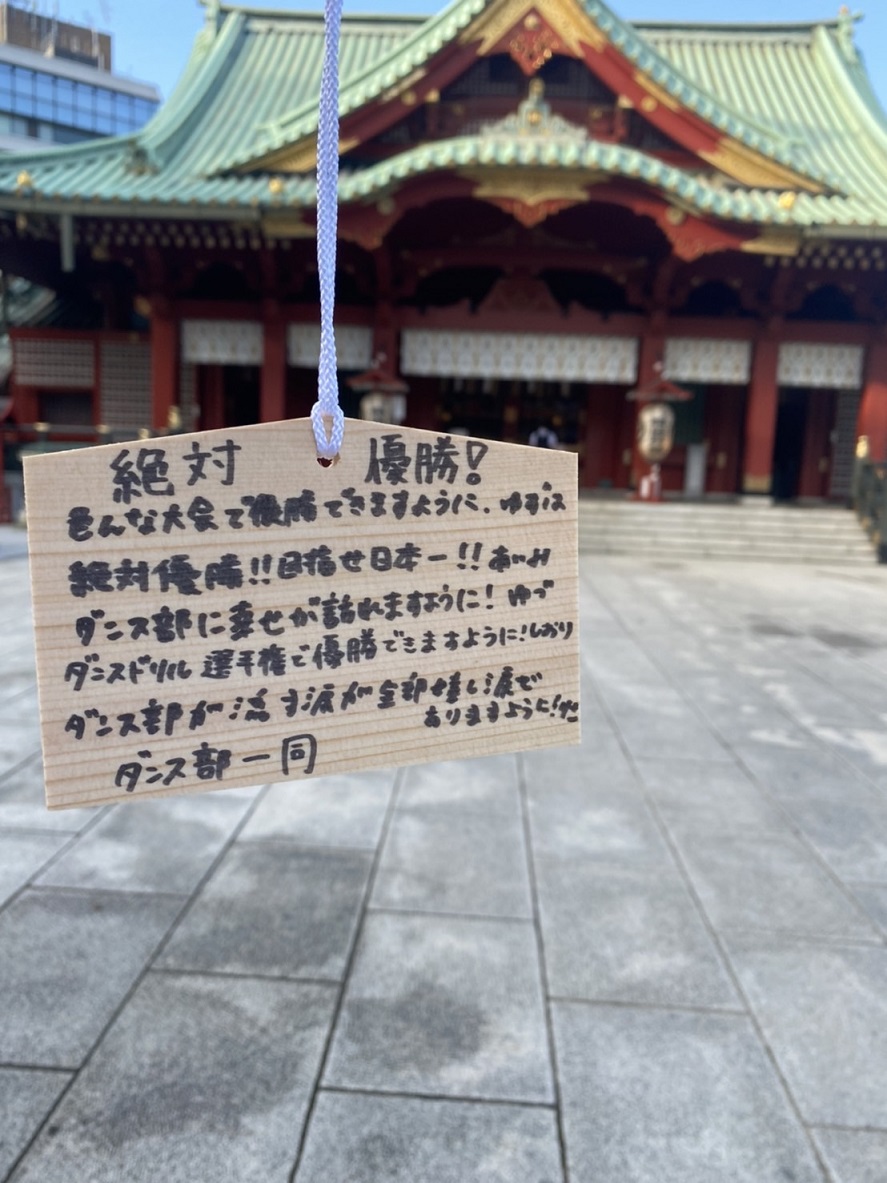 絶対 優勝!
色んな大会で優勝できますように。ゆずは
絶対優勝!!目指せ日本一!!あいみ
ダンス部に幸せが訪れますように!ゆづ
ダンスドリル選手権で優勝できますように!しおり
ダンス部が流す涙が全部嬉し涙で
ありますように!
ダンス部一同